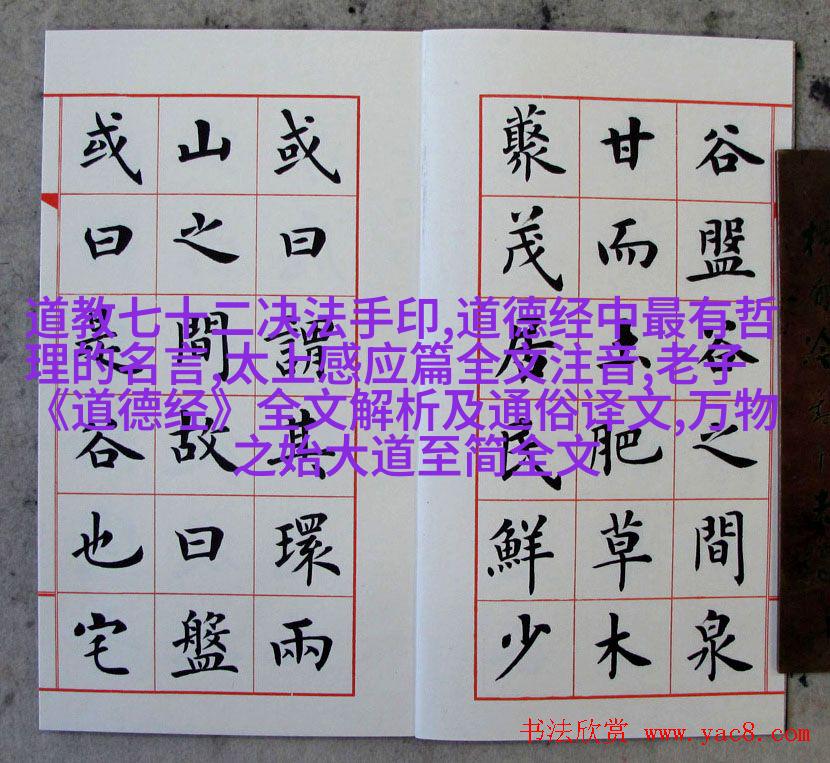 谷盤谷之間泉
甘而土肥草木
藂茂居民鮮少
或曰謂其環兩
山之間故曰盤
或曰是谷也宅
道教七十二决法手印,道德经中最有哲
理的名言,太上感应篇全文注音,老子
《道德经》全文解析及通俗译文,万物
之始大道至简全文
书法欣赏 www.yac8.com